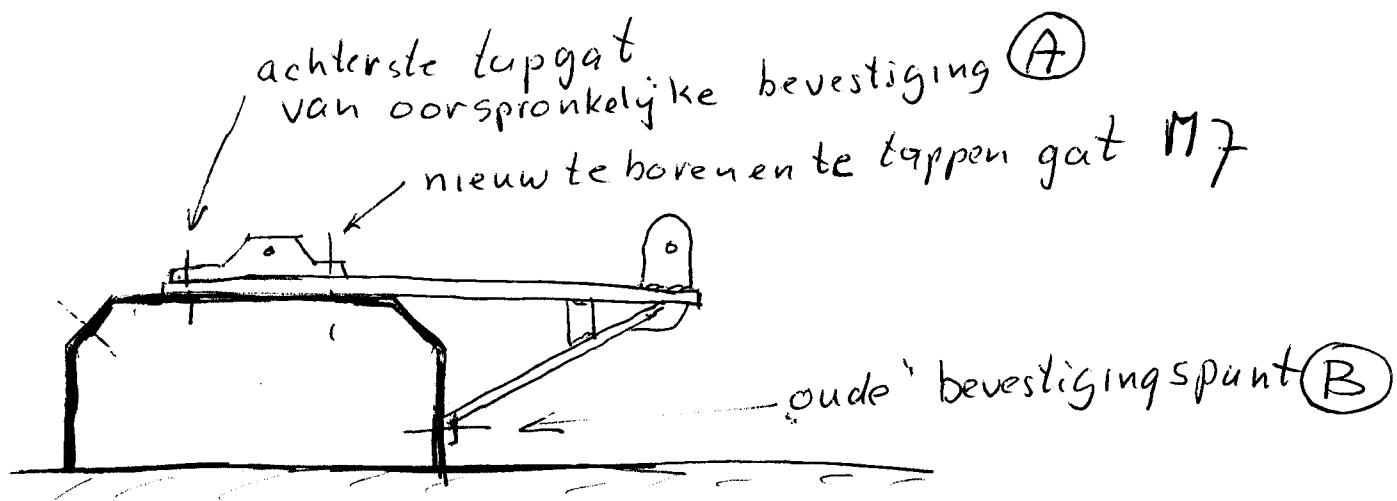 achterste tapgat
van oorspronkelijke bevestiging A
nieuw te boren en te tappen gat M7
oude bevestigingspunt B